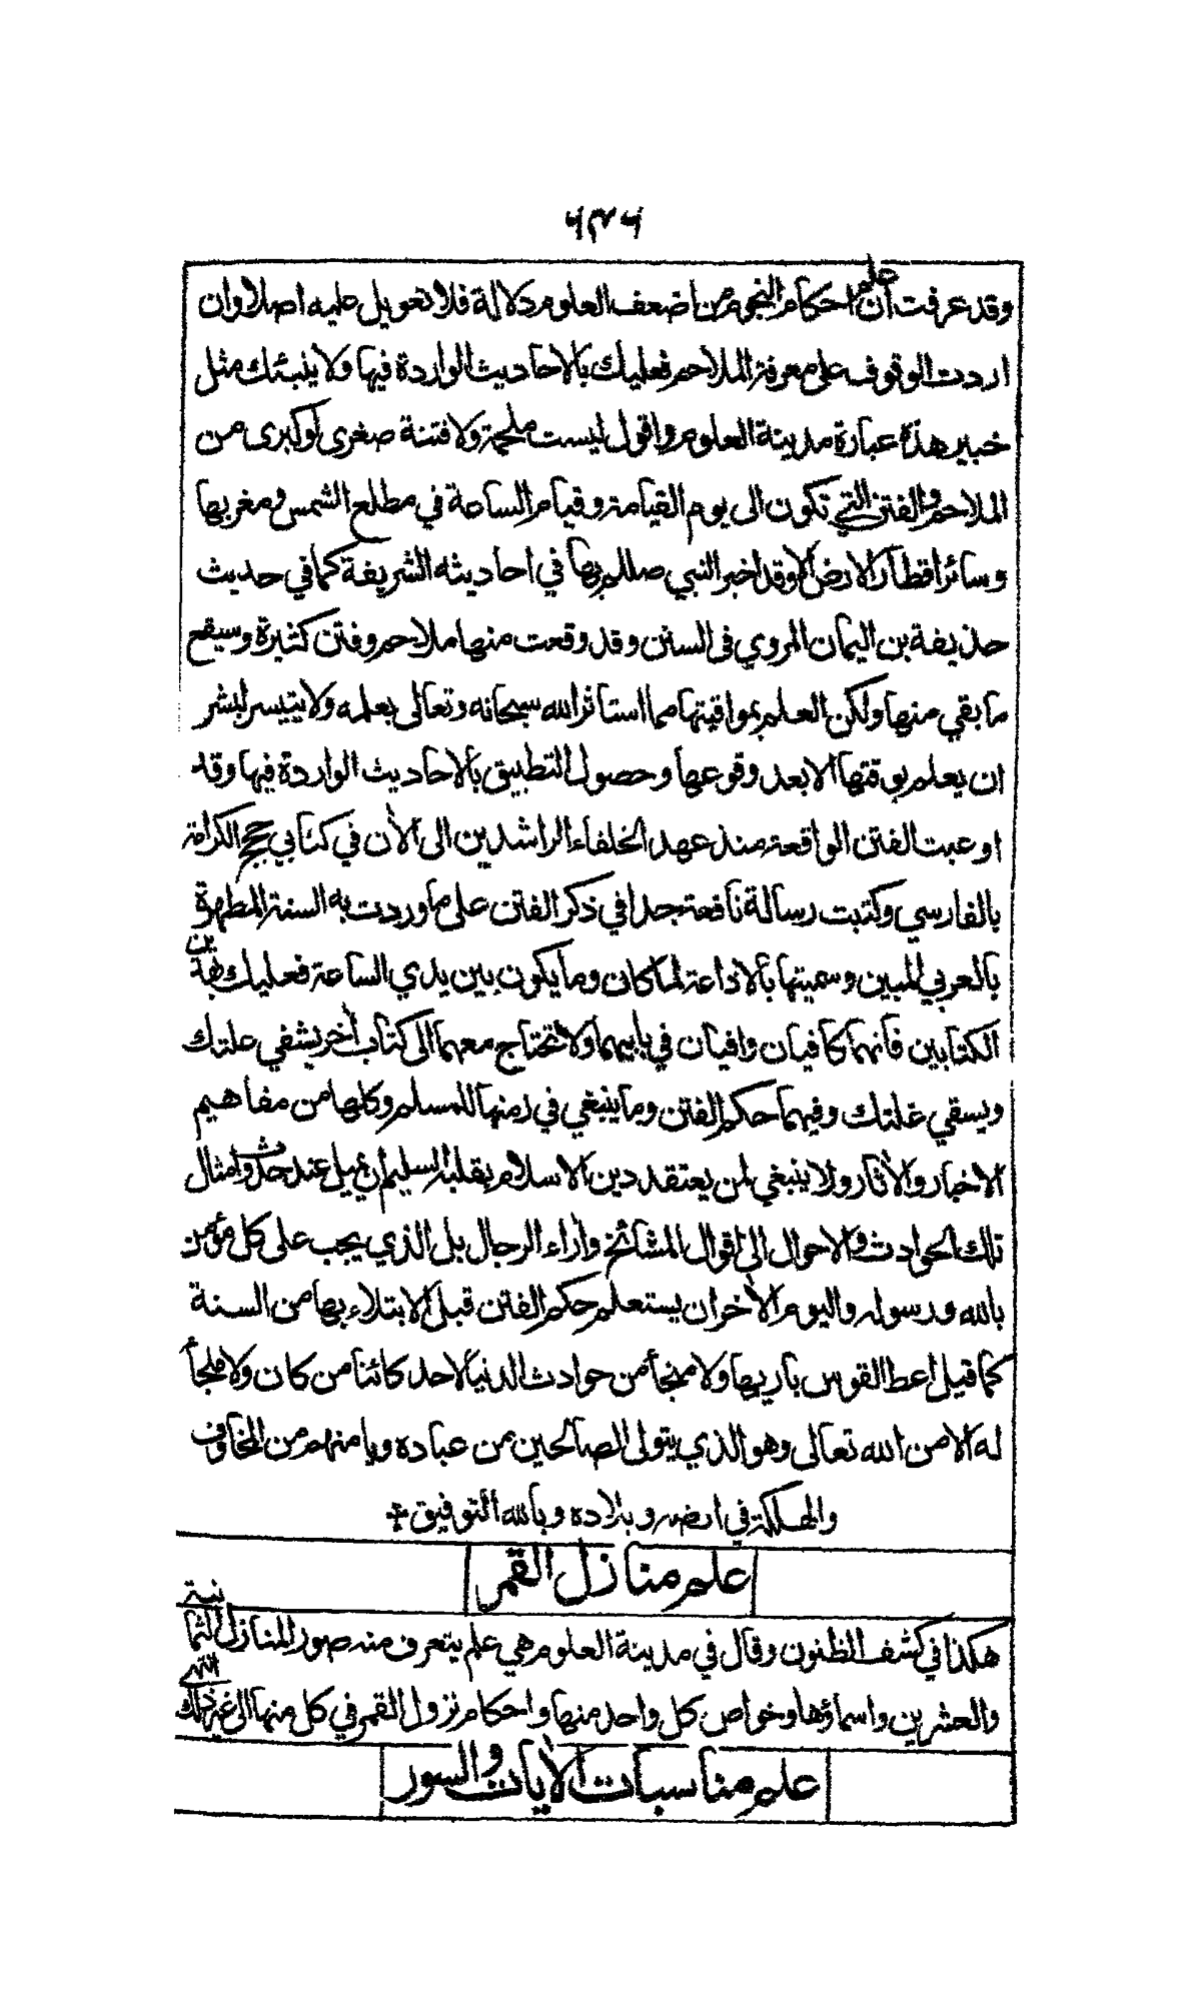 ٦٣٦
وقد عرفت ان علم احكام النجوم من اضعف العلوم دلالة فلا تعويل عليه اصلا وان
اردت الوقوف على معرفة الملاحم فعليك بالاحاديث الواردة فيها ولا ينبئك مثل
خبير هذه عبارة مدينة العلوم واقول ليست ملحمة ولا فتنة صغرى او كبرى من
الملاحم والفتن التي تكون الى يوم القيامة وقيام الساعة في مطلع الشمس ومغربها
وسائر اقطار الارض الا وقد اخبر النبي صللم بها في احاديثه الشريفة كما في حديث
حذيفة بن اليمان المروي في السنن وقد وقعت منها ملاحم وفتن كثيرة وسيقع
ما بقي منها ولكن العلم بمواقيتها مما استاثر الله سبحانه وتعالى بعلمه ولا يتيسر لبشر
ان يعلم بوقتها الا بعد وقوعها وحصول التطبيق بالاحاديث الواردة فيها وقد
اوعبت الفتن الواقعة منذ عهد الخلفاء الراشدين الى الآن في كتابي حجج الكرامة
بالفارسي وكتبت رسالة نافعة جدا في ذكر الفتن على ما وردت به السنة المطهرة
بالعربي المبين وسميتها بالاذاعة لما كان وما يكون بين يدي الساعة فعليك بهذين
الكتابين فانهما كافيان وافيان في بابهما ولا تحتاج معهما الى كتاب آخر يشفي علتك
ويسقي غلتك وفيهما حكم الفتن وما ينبغي في زمنها للمسلم وكلها من مفاهيم
الاخبار والآثار ولا ينبغي لمن يعتقد دين الاسلام بقلبه السليم ان يميل عند حدوث امثال
تلك الحوادث والاحوال الى اقوال المشائخ وآراء الرجال بل الذي يجب على كل مؤمن
بالله ورسوله واليوم الآخر ان يستعلم حكم الفتن قبل الابتلاء بها من السنة
كما قيل اعط القوس باريها ولا منجأ من حوادث الدنيا لاحد كائنا من كان ولا ملجأ
له الا من الله تعالى وهو الذي يتولى الصالحين من عباده ويامنهم من المخاوف
والهلكة في ارضه وبلاده وبالله التوفيق
علم منازل القمر
هكذا في كشف الظنون وقال في مدينة العلوم هي علم يتعرف منه صور المنازل الثمانية
والعشرين واسماؤها وخواص كل واحد منها واحكام نزول القمر في كل منها الى غير ذلك انتهى
علم مناسبات الآيات والسور